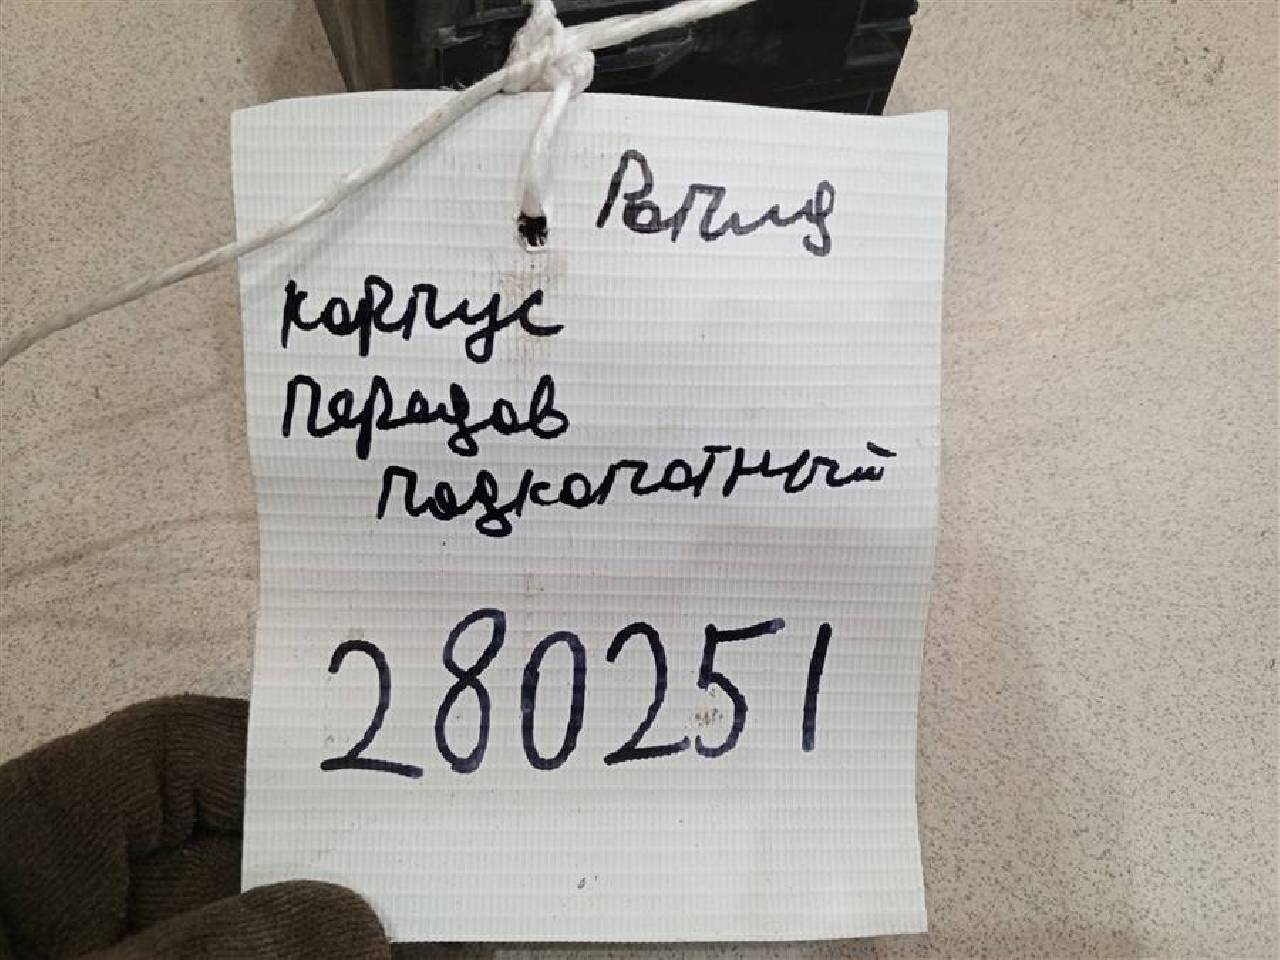 Рапид
корпус
передов
подкопотный
280251